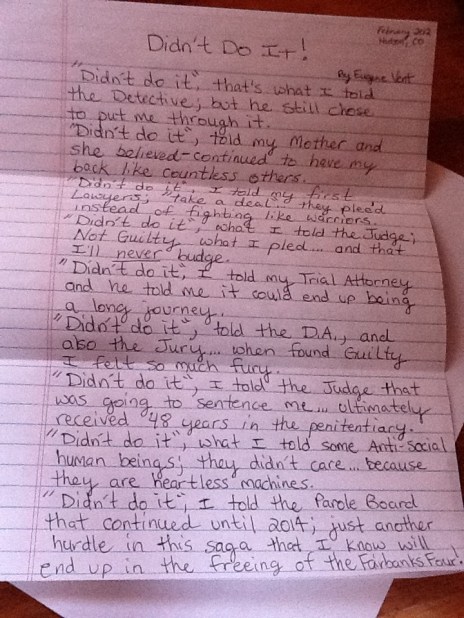 February 2012
Hudson, CO
Didn't Do It!
By Eugene Vent
"Didn't do it", that's what I told
the Detective; but he still chose
to put me through it.
"Didn't do it", told my Mother and
she believed-continued to have my
back like countless others.
"Didn't do it" I told my first
Lawyers; "take a deal" they plee'd
instead of fighting like warriors.
"Didn't do it", what I told the Judge;
Not Guilty what I pled... and that
I'll never budge.
"Didn't do it", I told my Trial Attorney
and he told me it could end up being
a long journey.
"Didn't do it", told the D.A., and
also the Jury... when found Guilty
I felt so much fury.
"Didn't do it", I told the Judge that
was going to sentence me... ultimately
received 48 years in the penitentiary.
"Didn't do it", what I told some Anti-Social
human beings; they didn't care... because
they are heartless machines.
"Didn't do it", I told the Parole Board
that continued until 2014; just another
hurdle in this saga that I know will
end up in the freeing of the Fairbanks Four!